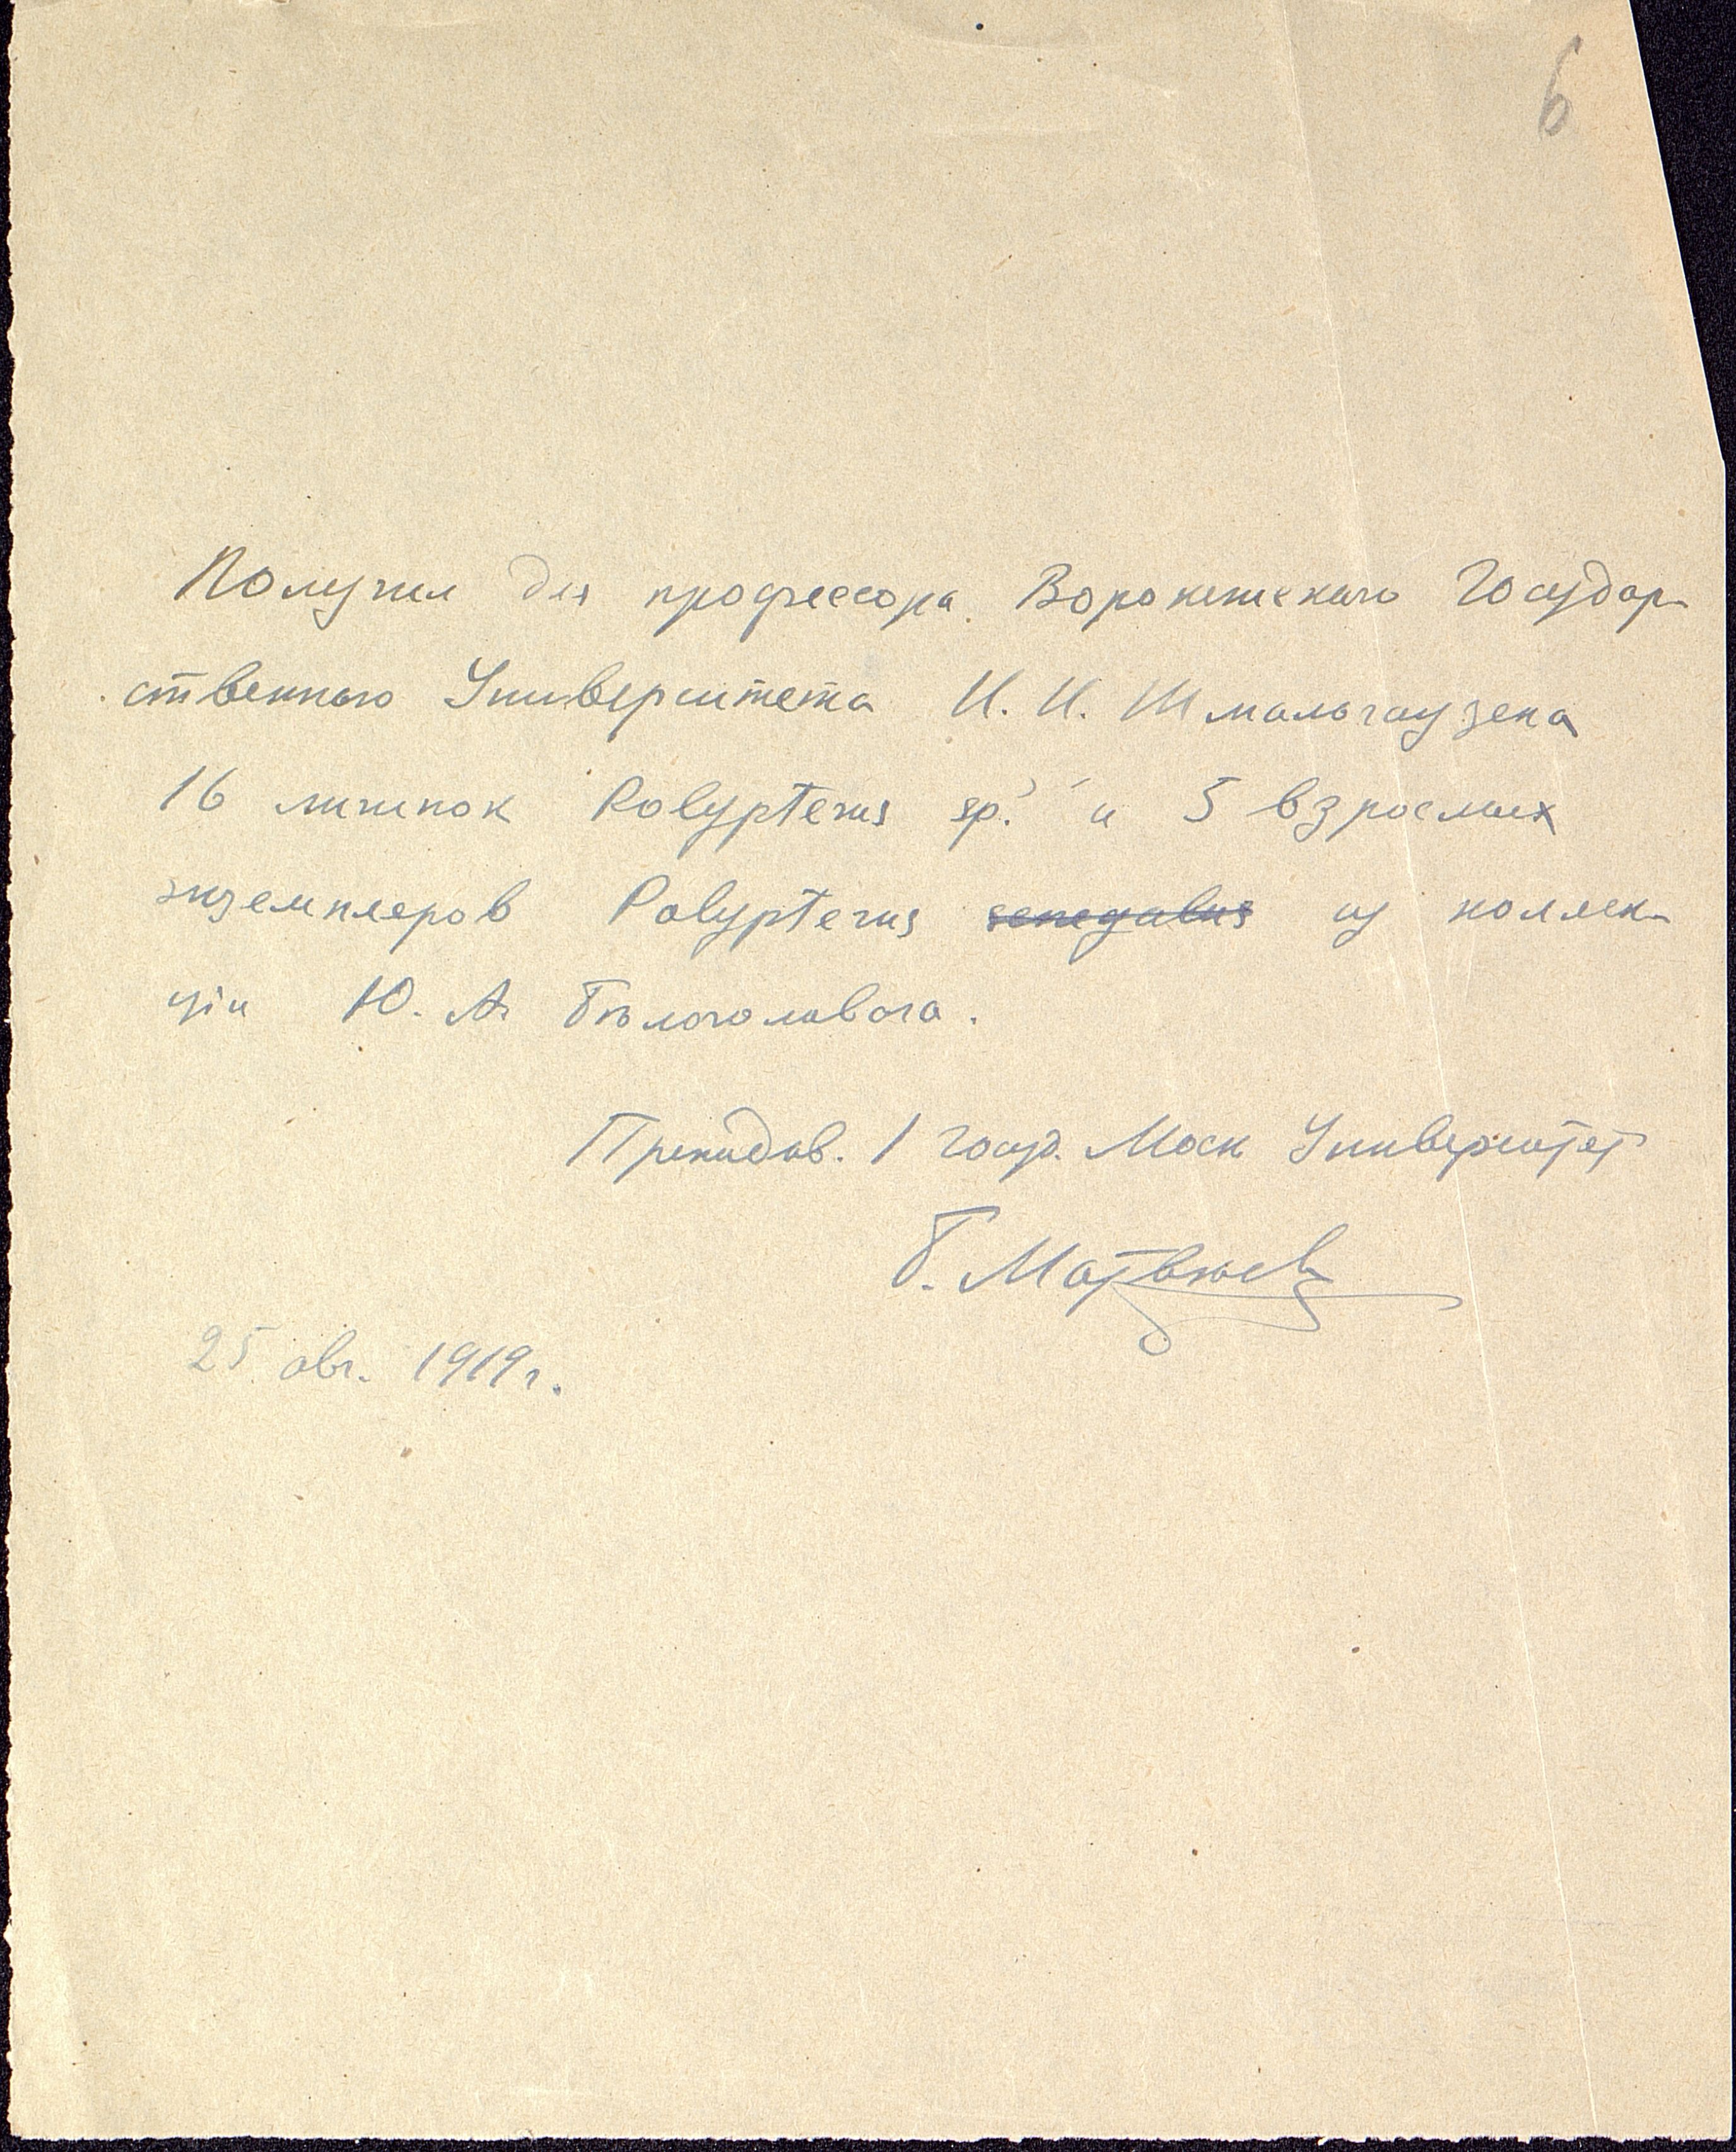 6
Получил для профессора Воронежскаго Государ-
ственнаго Университета И. И. Шмальгаузена
16 личинок Polypterus sp. и 5 взрослых
экземпляров Polypterus senegalus из коллек-
ціи Ю. А. Бѣлоголоваго.
Преподав. 1 Госуд. Моск Университет
Б. Матвѣев
25 авг. 1919 г.